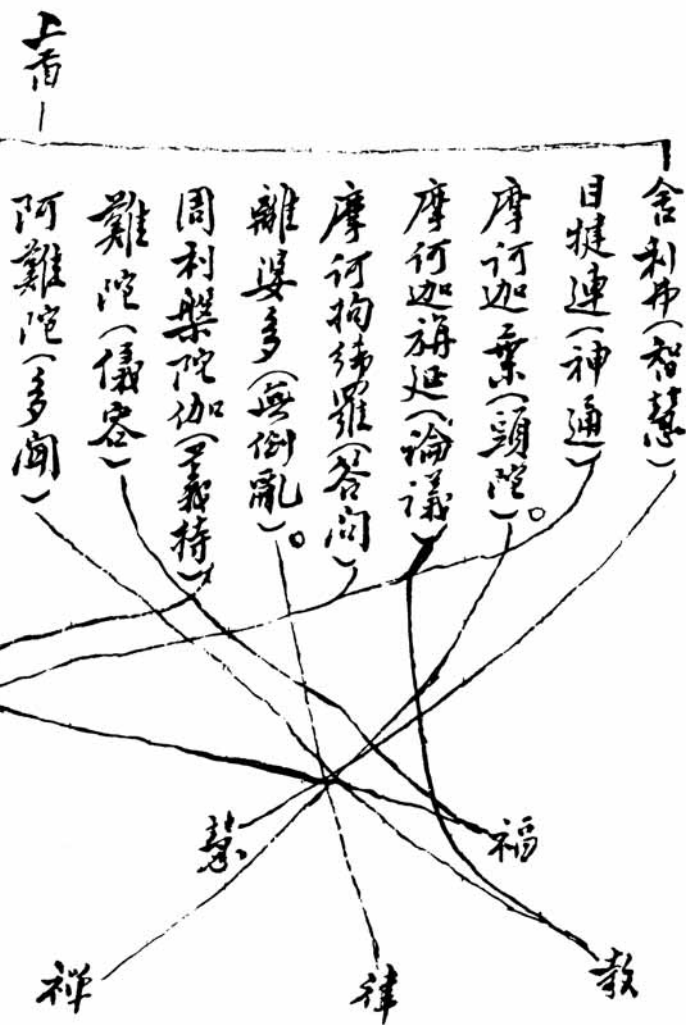 上首
舍利弗(智慧)
目犍連(神通)
摩訶迦葉(頭陀)。
摩訶迦旃延(論議)
摩訶拘絺羅(答問)
離婆多(無倒亂)。
周利槃陀伽(義持)
難陀(儀容)
阿難陀(多聞)
福
慧
教
律
禅